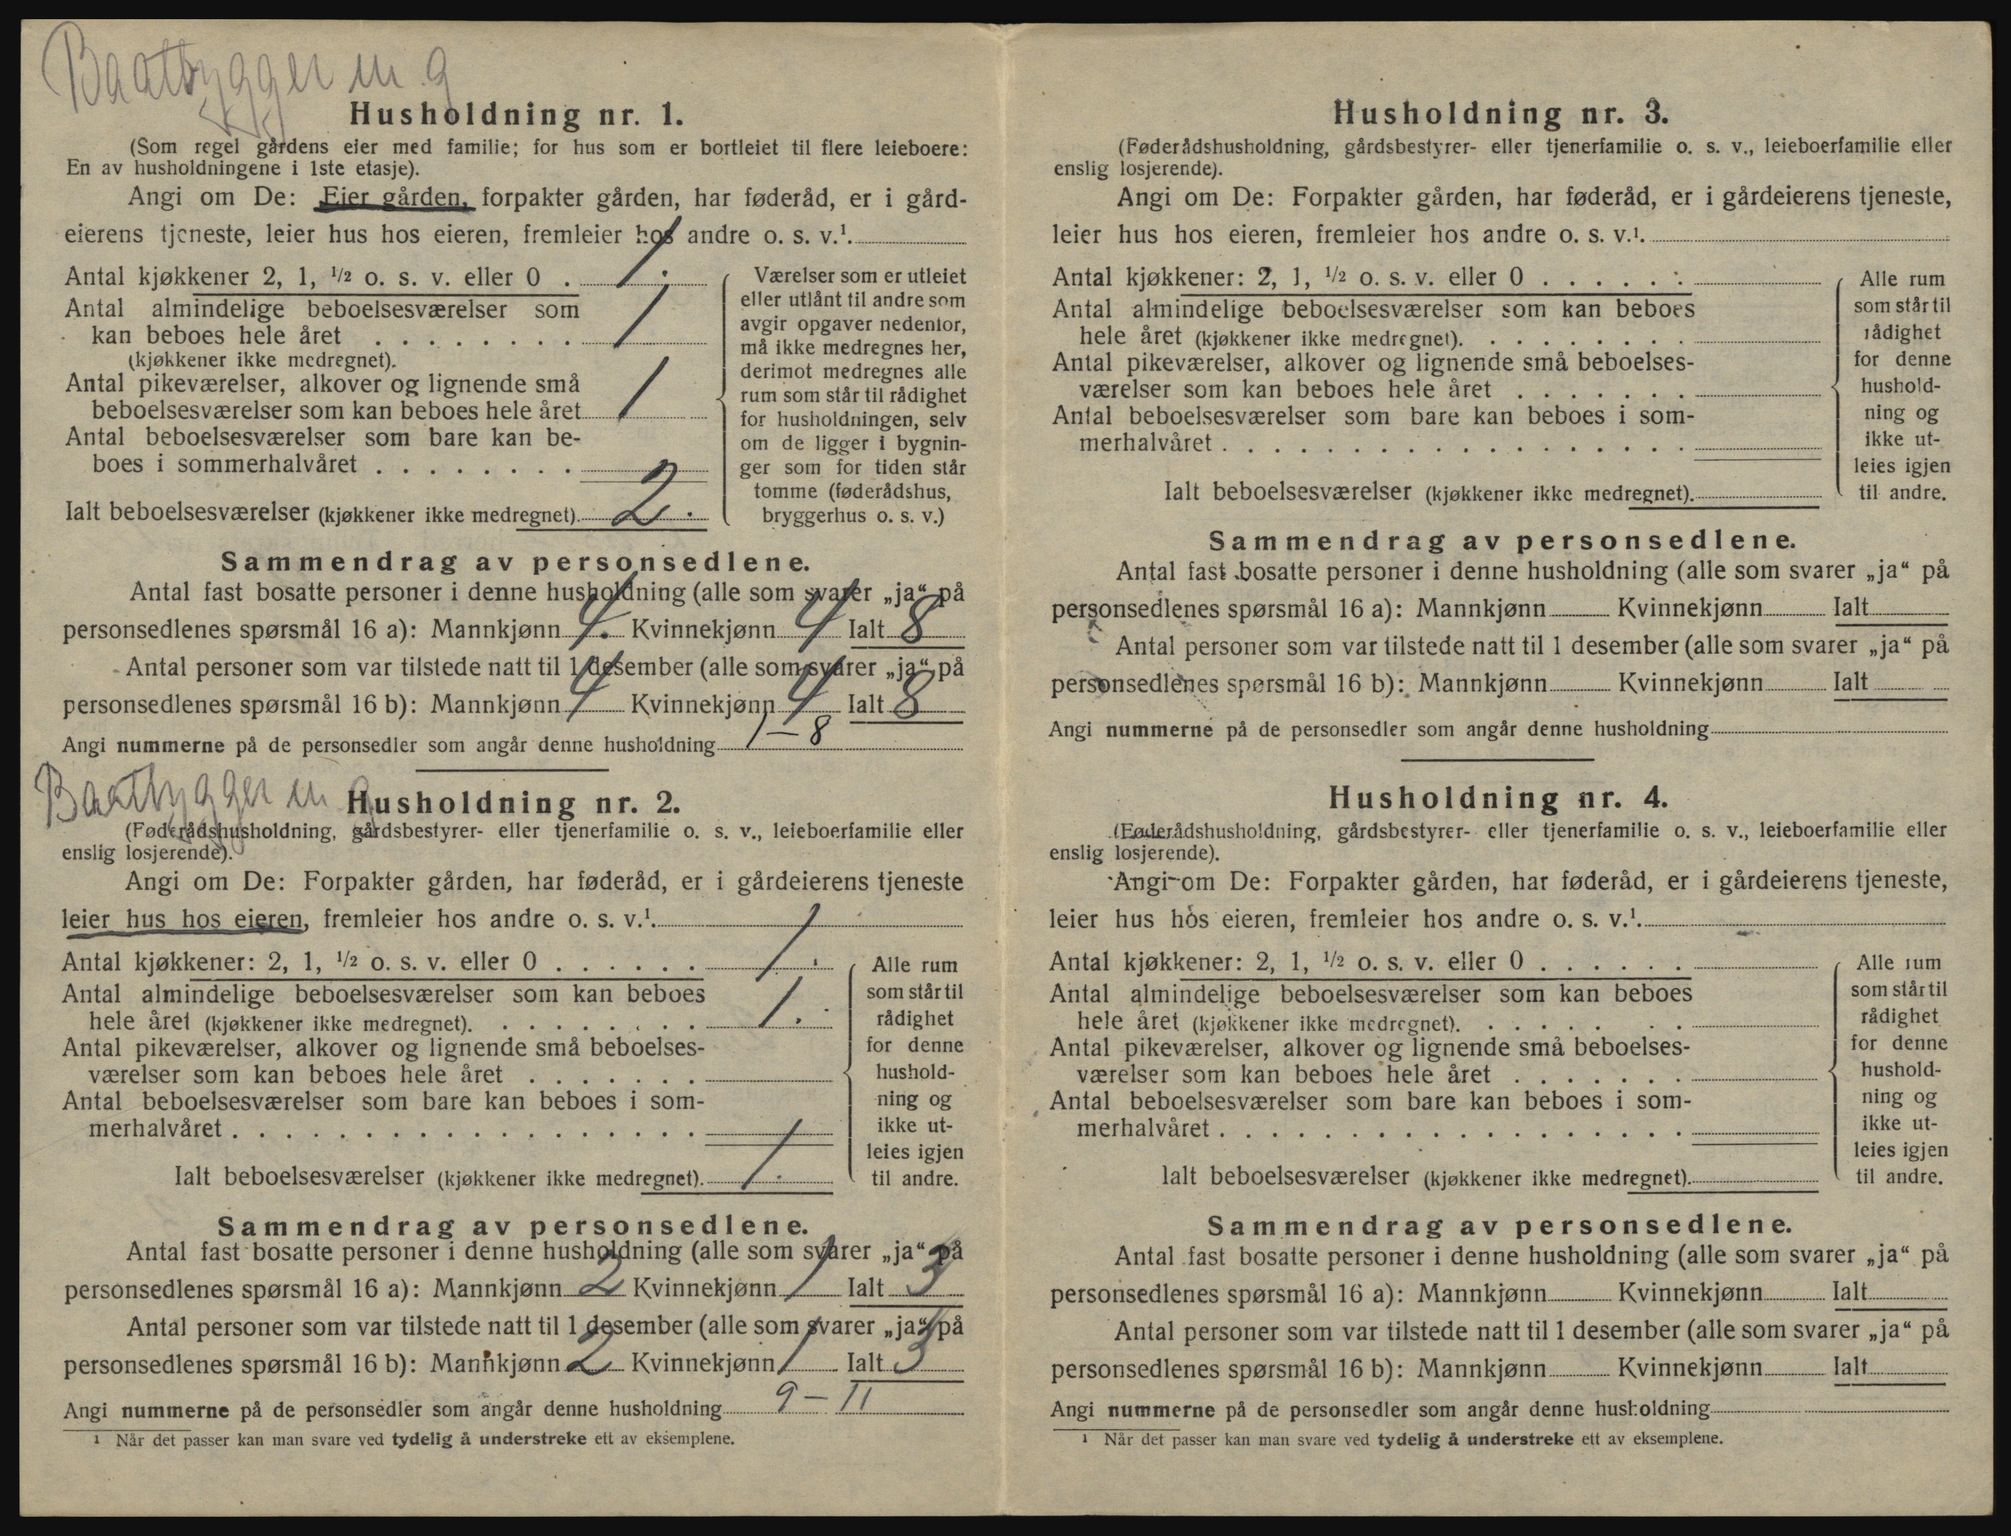 Baatbygger m. g
Husholdning nr. 1.
(Som regel gårdens eier med familie; for hus som er bortleiet til flere leieboere:
En av husholdningene i 1ste etasje).
Angi om De: Eier gården, forpakter gården, har føderåd, er i gård-
eierens tjeneste, leier hus hos eieren, fremleier hos andre o. s. v.¹.
Antal kjøkkener 2, 1, ½ o. s. v. eller 0 . 1.
Antal almindelige beboelsesværelser som
kan beboes hele året . . . . . . . . 1
(kjøkkener ikke medregnet).
Antal pikeværelser, alkover og lignende små
beboelsesværelser som kan beboes hele året 1
Antal beboelsesværelser som bare kan be-
boes i sommerhalvåret . . . . . . . .
Ialt beboelsesværelser (kjøkkener ikke medregnet). 2.
Værelser som er utleiet
eller utlånt til andre som
avgir opgaver nedenfor,
må ikke medregnes her,
derimot medregnes alle
rum som står til rådighet
for husholdningen, selv
om de ligger i bygnin-
ger som for tiden står
tomme (føderådshus,
bryggerhus o. s. v.)
Sammendrag av personsedlene.
Antal fast bosatte personer i denne husholdning (alle som svarer „ja“ på
personsedlenes spørsmål 16 a): Mannkjønn 4. Kvinnekjønn 4 Ialt 8
Antal personer som var tilstede natt til 1 desember (alle som svarer „ja“ på
personsedlenes spørsmål 16 b): Mannkjønn 4 Kvinnekjønn 4 Ialt 8
Angi nummerne på de personsedler som angår denne husholdning 1 – 8
Baatbygger m. g
Husholdning nr. 2.
(Føderådshusholdning, gårdsbestyrer- eller tjenerfamilie o. s. v., leieboerfamilie eller
enslig losjerende).
Angi om De: Forpakter gården, har føderåd, er i gårdeierens tjeneste
leier hus hos eieren, fremleier hos andre o. s. v.¹.
Antal kjøkkener: 2, 1, ½ o. s. v. eller 0 . . . . . . 1.
Antal almindelige beboelsesværelser som kan beboes
hele året (kjøkkener ikke medregnet). . . . . . . . . 1.
Antal pikeværelser, alkover og lignende små beboelses-
værelser som kan beboes hele året . . . . . . .
Antal beboelsesværelser som bare kan beboes i som-
merhalvåret . . . . . . . . . . . . . . . . . .
Ialt beboelsesværelser (kjøkkener ikke medregnet). 1.
Alle rum
som står til
rådighet
for denne
hushold-
ning og
ikke ut-
leies igjen
til andre.
Sammendrag av personsedlene.
Antal fast bosatte personer i denne husholdning (alle som svarer „ja“ på
personsedlenes spørsmål 16 a): Mannkjønn 2 Kvinnekjønn 1 Ialt 3
Antal personer som var tilstede natt til 1 desember (alle som svarer „ja“ på
personsedlenes spørsmål 16 b): Mannkjønn 2 Kvinnekjønn 1 Ialt 3
Angi nummerne på de personsedler som angår denne husholdning 9 – 11
¹ Når det passer kan man svare ved tydelig å understreke ett av eksemplene.
Husholdning nr. 3.
(Føderådshusholdning, gårdsbestyrer- eller tjenerfamilie o. s. v., leieboerfamilie eller
enslig losjerende).
Angi om De: Forpakter gården, har føderåd, er i gårdeierens tjeneste,
leier hus hos eieren, fremleier hos andre o. s. v.¹.
Antal kjøkkener: 2, 1, ½ o. s. v. eller 0 . . . . . .
Antal almindelige beboelsesværelser som kan beboes
hele året (kjøkkener ikke medregnet). . . . . . . . .
Antal pikeværelser, alkover og lignende små beboelses-
værelser som kan beboes hele året . . . . . . .
Antal beboelsesværelser som bare kan beboes i som-
merhalvåret . . . . . . . . . . . . . . . . . .
Ialt beboelsesværelser (kjøkkener ikke medregnet).
Alle rum
som står til
rådighet
for denne
hushold-
ning og
ikke ut-
leies igjen
til andre.
Sammendrag av personsedlene.
Antal fast bosatte personer i denne husholdning (alle som svarer „ja“ på
personsedlenes spørsmål 16 a): Mannkjønn Kvinnekjønn Ialt
Antal personer som var tilstede natt til 1 desember (alle som svarer „ja“ på
personsedlenes spørsmål 16 b): Mannkjønn Kvinnekjønn Ialt
Angi nummerne på de personsedler som angår denne husholdning
Husholdning nr. 4.
(Føderådshusholdning, gårdsbestyrer- eller tjenerfamilie o. s. v., leieboerfamilie eller
enslig losjerende).
Angi om De: Forpakter gården, har føderåd, er i gårdeierens tjeneste,
leier hus hos eieren, fremleier hos andre o. s. v.¹.
Antal kjøkkener: 2, 1, ½ o. s. v. eller 0 . . . . . .
Antal almindelige beboelsesværelser som kan beboes
hele året (kjøkkener ikke medregnet). . . . . . . . .
Antal pikeværelser, alkover og lignende små beboelses-
værelser som kan beboes hele året . . . . . . .
Antal beboelsesværelser som bare kan beboes i som-
merhalvåret . . . . . . . . . . . . . . . . . .
Ialt beboelsesværelser (kjøkkener ikke medregnet).
Alle rum
som står til
rådighet
for denne
hushold-
ning og
ikke ut-
leies igjen
til andre.
Sammendrag av personsedlene.
Antal fast bosatte personer i denne husholdning (alle som svarer „ja“ på
personsedlenes spørsmål 16 a): Mannkjønn Kvinnekjønn Ialt
Antal personer som var tilstede natt til 1 desember (alle som svarer „ja“ på
personsedlenes spørsmål 16 b): Mannkjønn Kvinnekjønn Ialt
Angi nummerne på de personsedler som angår denne husholdning
¹ Når det passer kan man svare ved tydelig å understreke ett av eksemplene.